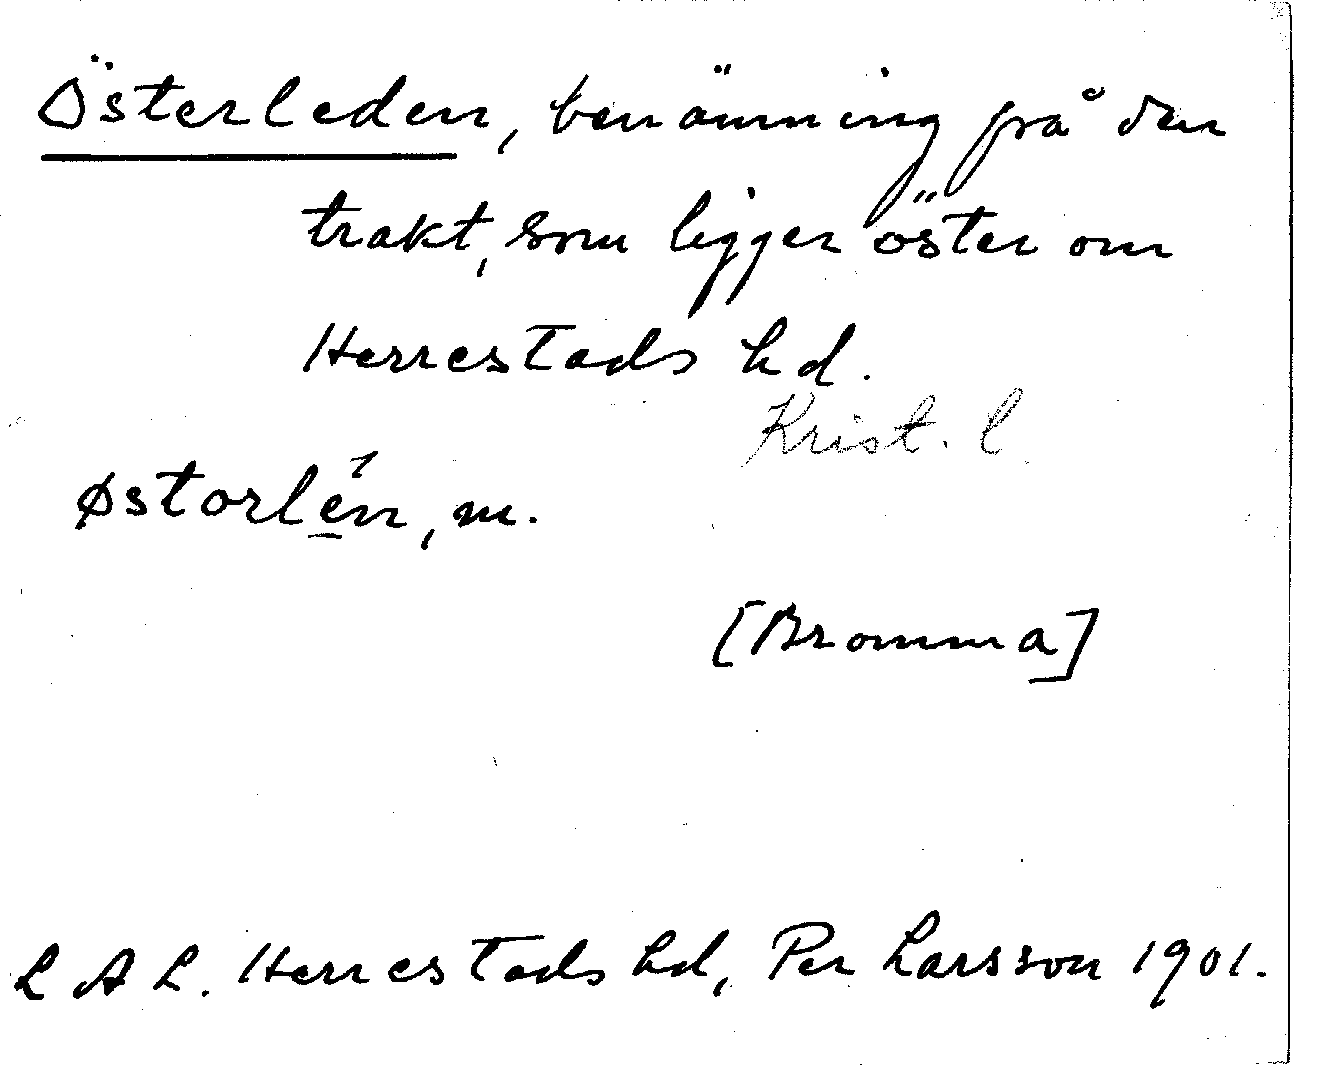 Österleden, benämning på den
trakt, som ligger öster om
Herrestads hd.
Krist. l
østorlén, m.
[Bromma]
L A L. Herrestads hd, Per Larsson 1901.